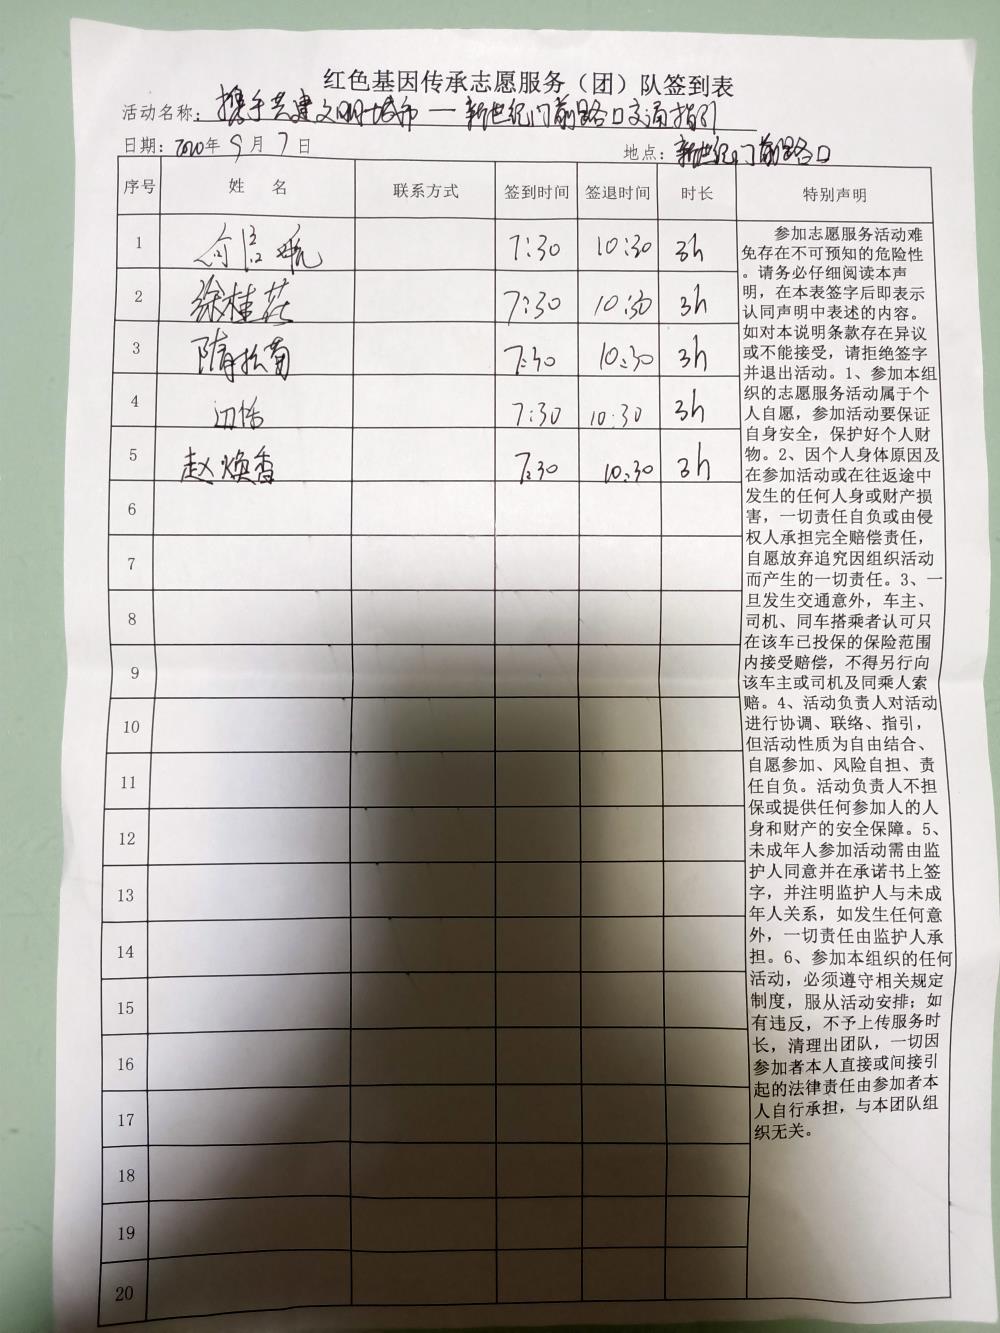 红色基因传承志愿服务（团）队签到表
活动名称：携手共建文明城市—新世纪门前路口交通指引
日期：2020年9月7日 地点：新世纪门前路口
序号 姓 名 联系方式 签到时间 签退时间 时长 特别声明
1 7:30 10:30 3h
2 徐桂花 7:30 10:30 3h
3 隋松菊 7:30 10:30 3h
4 7:30 10:30 3h
5 赵焕香 7:30 10:30 3h
6
7
8
9
10
11
12
13
14
15
16
17
18
19
20
参加志愿服务活动难
免存在不可预知的危险性
。请务必仔细阅读本声
明，在本表签字后即表示
认同声明中表述的内容。
如对本说明条款存在异议
或不能接受，请拒绝签字
并退出活动。1、参加本组
织的志愿服务活动属于个
人自愿，参加活动要保证
自身安全，保护好个人财
物。2、因个人身体原因及
在参加活动或在往返途中
发生的任何人身或财产损
害，一切责任自负或由侵
权人承担完全赔偿责任，
自愿放弃追究因组织活动
而产生的一切责任。3、一
旦发生交通意外，车主、
司机、同车搭乘者认可只
在该车已投保的保险范围
内接受赔偿，不得另行向
该车主或司机及同乘人索
赔。4、活动负责人对活动
进行协调、联络、指引，
但活动性质为自由结合、
自愿参加、风险自担、责
任自负。活动负责人不担
保或提供任何参加人的人
身和财产的安全保障。5、
未成年人参加活动需由监
护人同意并在承诺书上签
字，并注明监护人与未成
年人关系，如发生任何意
外，一切责任由监护人承
担。6、参加本组织的任何
活动，必须遵守相关规定
制度，服从活动安排；如
有违反，不予上传服务时
长，清理出团队，一切因
参加者本人直接或间接引
起的法律责任由参加者本
人自行承担，与本团队组
织无关。